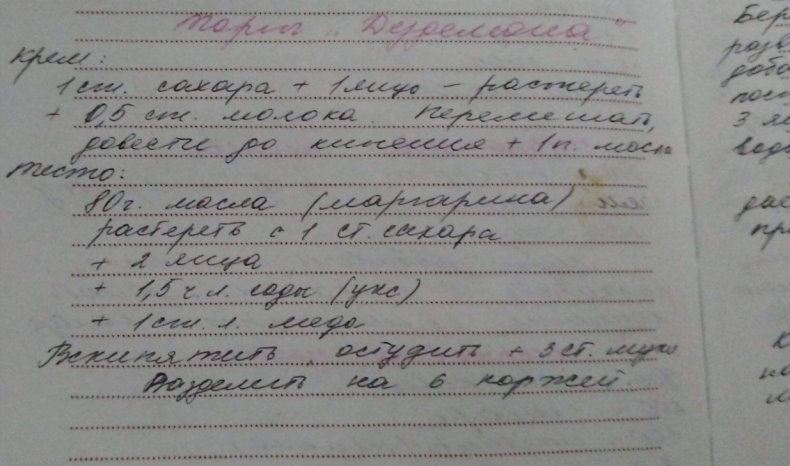 Торт „Дездемона"
Крем:
1 ст. сахара + 1 яйцо – растереть
+ 0,5 ст. молока. Перемешать,
довести до кипения + 1 п. масла
Тесто:
80 г. масла (маргарина)
растереть с 1 ст. сахара
+ 2 яйца
+ 1,5 ч. л. соды (укс)
+ 1 ст. л. меда
Вскипятить, остудить + 3 ст. муки
Разделить на 6 коржей
Бер
разв
доба
пост
3 яй
воды
дае
пр
к
на